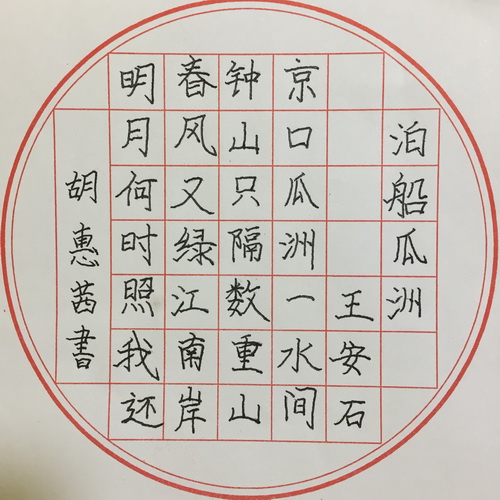 泊船瓜洲
王安石
京口瓜洲一水间
钟山只隔数重山
春风又绿江南岸
明月何时照我还
胡惠茜書